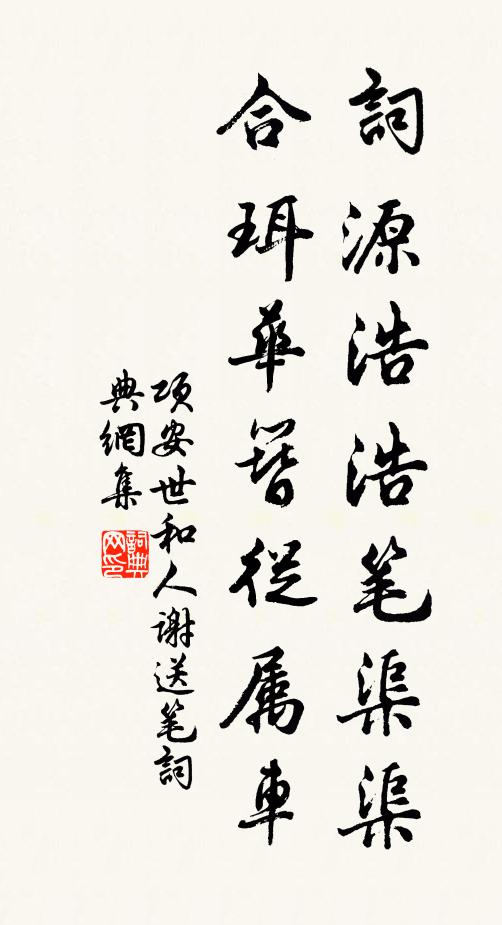 詞源浩浩笔渠渠
合珥華簪從属車
項安世和人謝送笔詞
典網集
詞典
网印